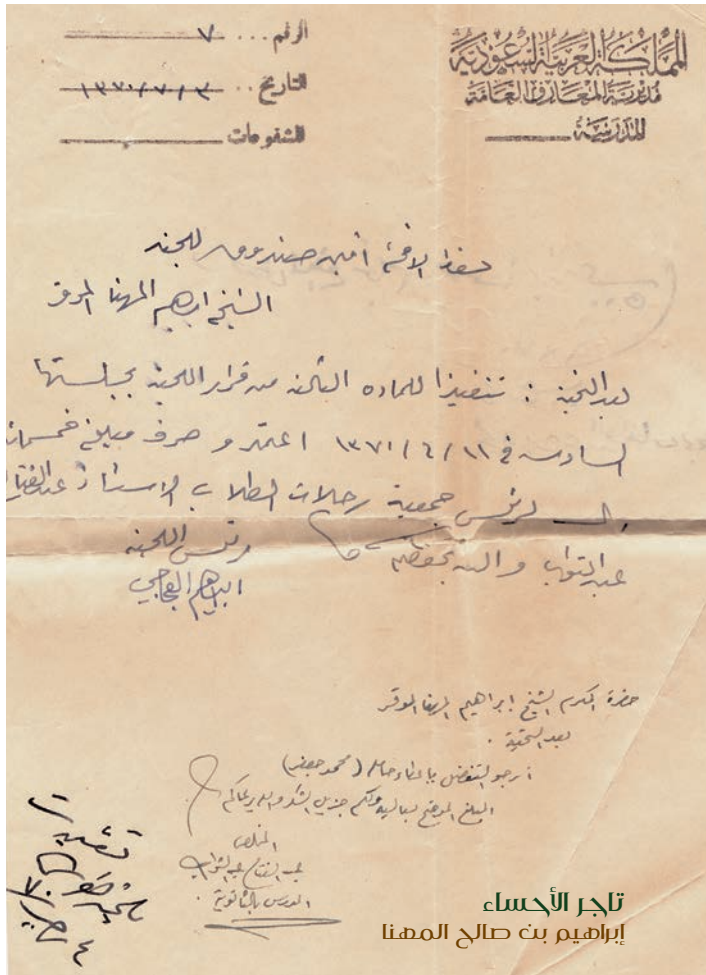 المملكة العربية السعودية
مديرية المعارف العامة
المدرسة
الرقم ... ٧
التاريخ .. ١٣٧٠/٧/٣
المشفوعات
حضرة الأخ أمين صندوق اللجنة
الشيخ ابراهيم المهنا الموقر
بعد التحية : تنفيذا للماده الثالثة من قرار اللجنة بجلستها
السادسه في ١١ / ٦ / ١٣٧٠ اعتمدو صرف مبلغ خمسمائة
ريال لرئيس جمعية رحلات الطلاب الاستاذ عبدالفتاح
عبد التواب والله يحفظكم
رئيس اللجنه
ابراهيم
حضرة المكرم الشيخ إبراهيم المهنا الموقر
بعد التحية .
أرجو التفضل باعطاء حامله (محمد جعفر)
المبلغ الموضح بعاليه ولكم جزيل الشكر والله يرعاكم
المخلص
عبد الفتاح عبد التواب
المدرس بالثانوية .
تاجر الأحساء
إبراهيم بن صالح المهنا